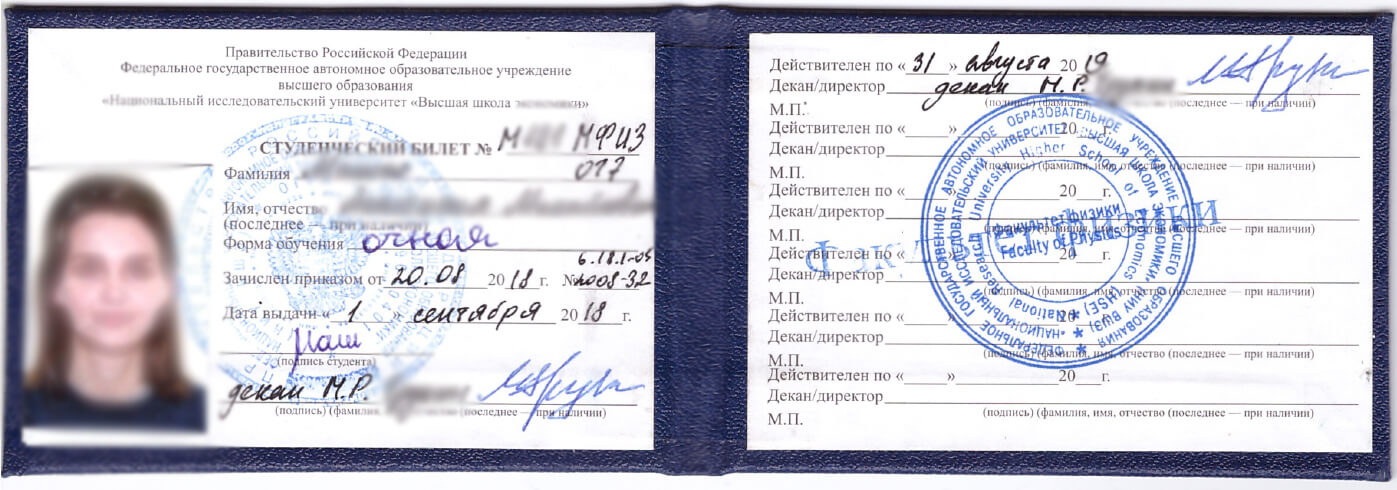 Правительство Российской Федерации
Федеральное государственное автономное образовательное учреждение
высшего образования
«Национальный исследовательский университет «Высшая школа экономики»
СТУДЕНЧЕСКИЙ БИЛЕТ № М МФИЗ
017
Фамилия
Имя, отчество
(последнее — при наличии)
Форма обучения очная
6.18.1-05
Зачислен приказом от 20.08 2018 г. № 2008-32
Дата выдачи « 1 » сентября 2018 г.
(подпись студента)
декан М.Р.
(подпись) (фамилия, отчество (последнее — при наличии)
Действителен по « 31 » августа 2019
Декан/директор декан М.Р.
(подпись) (фамилия, (последнее — при наличии)
М.П.
Действителен по « » 20 г.
Декан/директор
(подпись) (фамилия, имя, отчество (последнее — при наличии)
М.П.
Действителен по « » 20 г.
Декан/директор
(подпись) (фамилия, имя, отчество (последнее — при наличии)
М.П.
Действителен по « » 20 г.
Декан/директор
(подпись) (фамилия, имя, отчество (последнее — при наличии)
М.П.
Действителен по « » 20 г.
Декан/директор
(подпись) (фамилия, имя, отчество (последнее — при наличии)
М.П.
Действителен по « » 20 г.
Декан/директор
(подпись) (фамилия, имя, отчество (последнее — при наличии)
М.П.
ФЕДЕРАЛЬНОЕ ГОСУДАРСТВЕННОЕ АВТОНОМНОЕ ОБРАЗОВАТЕЛЬНОЕ УЧРЕЖДЕНИЕ ВЫСШЕГО ОБРАЗОВАНИЯ
«НАЦИОНАЛЬНЫЙ ИССЛЕДОВАТЕЛЬСКИЙ УНИВЕРСИТЕТ «ВЫСШАЯ ШКОЛА ЭКОНОМИКИ» (НИУ ВШЭ)
National Research University Higher School of Economics (HSE)
Факультет физики
Faculty of Physics